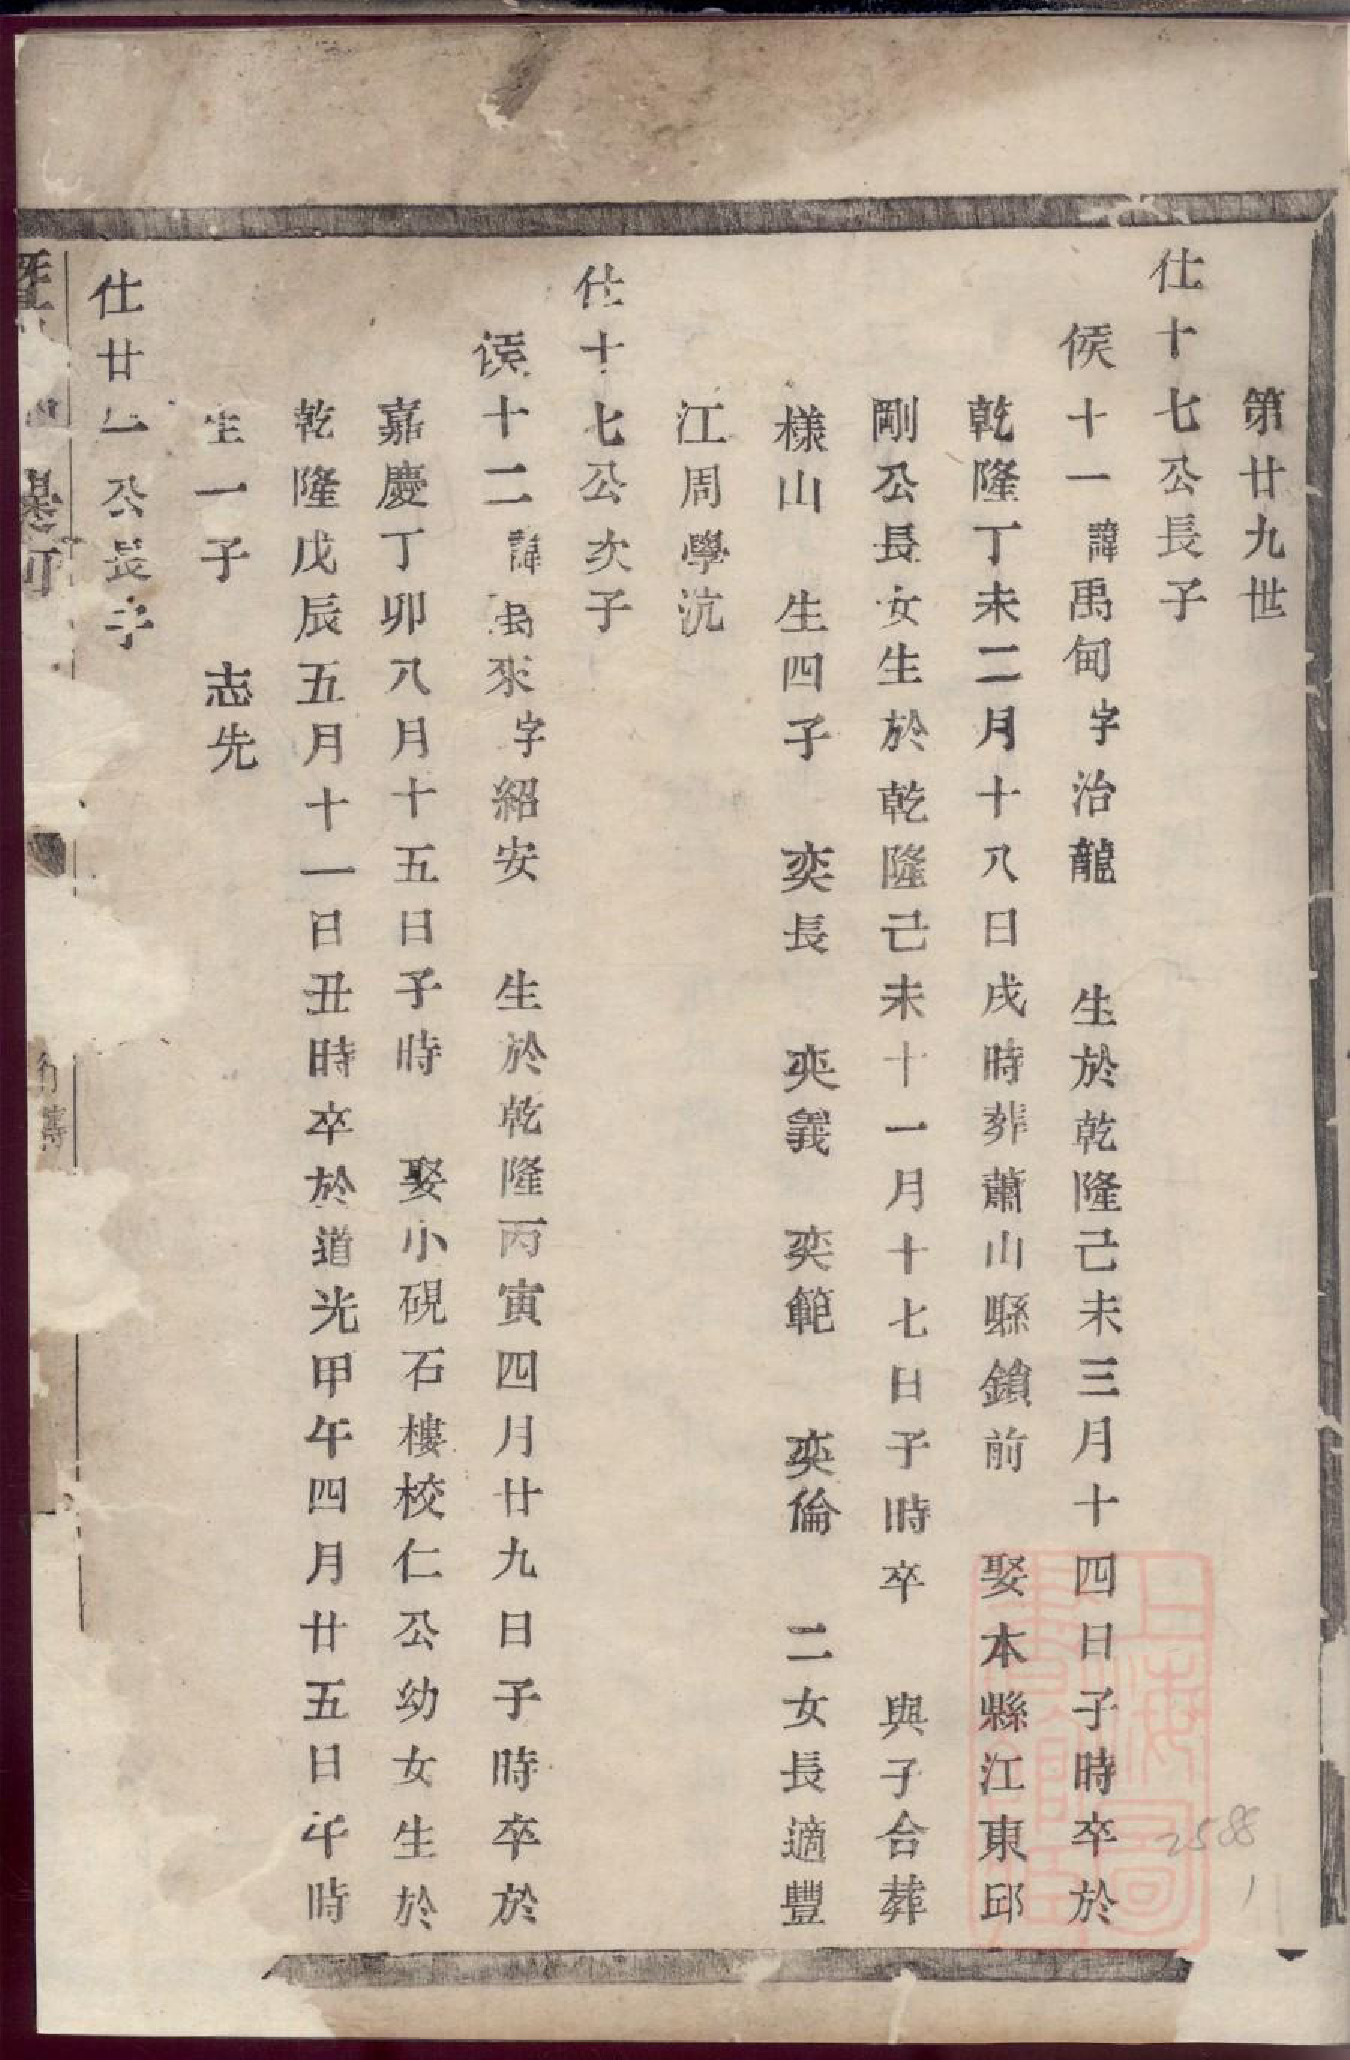 第廿九世
仕十七公長子
俟十一諱禹甸字治龍　生於乾隆己未三月十四日子時卒於
乾隆丁未二月十八日戌時葬蕭山縣鎖前　娶本縣江東邱
剛公長女生於乾隆己未十一月十七日子時卒　與子合葬
樣山　生四子　奕長　奕義　奕範　奕倫　二女長適豐
江周學沆
仕十七公次子
俟十二諱禹來字紹安　生於乾隆丙寅四月廿九日子時卒於
嘉慶丁卯八月十五日子時　娶小硯石樓校仁公幼女生於
乾隆戊辰五月十一日丑時卒於道光甲午四月廿五日午時
生一子　志先
仕廿一公長子
暨
行傳
上海圖書館藏
2588